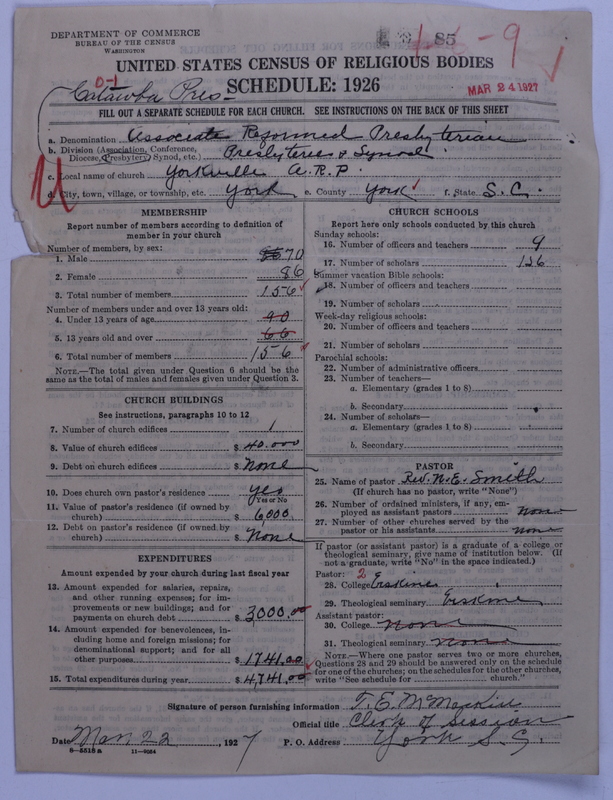 DEPARTMENT OF COMMERCE
BUREAU OF THE CENSUS
WASHINGTON
85
1-5-9
UNITED STATES CENSUS OF RELIGIOUS BODIES
SCHEDULE: 1926
MAR 24 1927
0-1
Catawba Pres-
FILL OUT A SEPARATE SCHEDULE FOR EACH CHURCH. SEE INSTRUCTIONS ON THE BACK OF THIS SHEET
a. Denomination Associate Reformed Presbyterian
b. Division (Association, Conference, Diocese, Presbytery, Synod, etc.) Presbyteries & Synod.
c. Local name of church Yorkville A.R.P.
d. City, town, village, or township, etc. York e. County York f. State S.C.
MEMBERSHIP
Report number of members according to definition of
member in your church
Number of members, by sex:
1. Male 70
2. Female 86
3. Total number of members 156
Number of members under and over 13 years old:
4. Under 13 years of age 90
5. 13 years old and over 66
6. Total number of members 156
NOTE.—The total given under Question 6 should be
same as the total of males and females given under Question 3.
CHURCH BUILDINGS
See instructions, paragraphs 10 to 12
7. Number of church edifices 1
8. Value of church edifices $ 40.000
9. Debt on church edifices $ None
10. Does church own pastor's residence yes
Yes or No
11. Value of pastor's residence (if owned by
church) $ 6,000
12. Debt on pastor's residence (if owned by
church) $ None
EXPENDITURES
Amount expended by your church during last fiscal year
13. Amount expended for salaries, repairs,
and other running expenses; for im-
provements or new buildings; and for
payments on church debt $ 3000.00
14. Amount expended for benevolences, in-
cluding home and foreign missions; for
denominational support; and for all
other purposes $ 1741.00
15. Total expenditures during year $ 4,741.00
CHURCH SCHOOLS
Report here only schools conducted by this church
Sunday schools:
16. Number of officers and teachers 9
17. Number of scholars 126
Summer vacation Bible schools:
18. Number of officers and teachers
19. Number of scholars
Week-day religious schools:
20. Number of officers and teachers
21. Number of scholars
Parochial schools:
22. Number of administrative officers
23. Number of teachers—
a. Elementary (grades 1 to 8)
b. Secondary
24. Number of scholars—
a. Elementary (grades 1 to 8)
b. Secondary
PASTOR
25. Name of pastor Rev. W. E. Smith
(If church has no pastor, write "None")
26. Number of ordained ministers, if any, em-
ployed as assistant pastors none
27. Number of other churches served by the
pastor or his assistants none
If pastor (or assistant pastor) is a graduate of a college or
theological seminary, give name of institution below. (If
not a graduate, write "No" in the space indicated.)
Pastor: 2
28. College Erskine
29. Theological seminary Erskine
Assistant pastor:
30. College none
31. Theological seminary none
NOTE.—Where one pastor serves two or more churches,
Questions 28 and 29 should be answered only on the schedule
for one of the churches; on the schedules for the other churches,
write "See schedule for church."
Signature of person furnishing information F. E. McMackin
Official title Clerk of Session
Date Mar. 22, 1927 P. O. Address York S.C.
8-5518a 11-9264